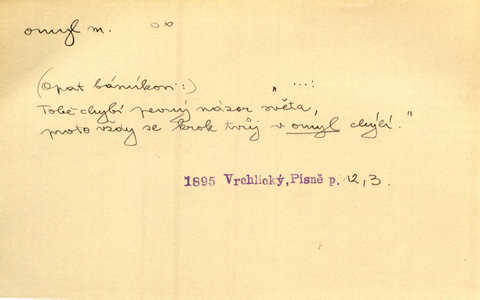 omyl m. oo
(Opat básníkovi:) „ ...:
Tobě chybí pevný názor světa,
proto vždy se krok tvůj v omyl chýlí."
1895 Vrchlický, Písně p. 12,3.